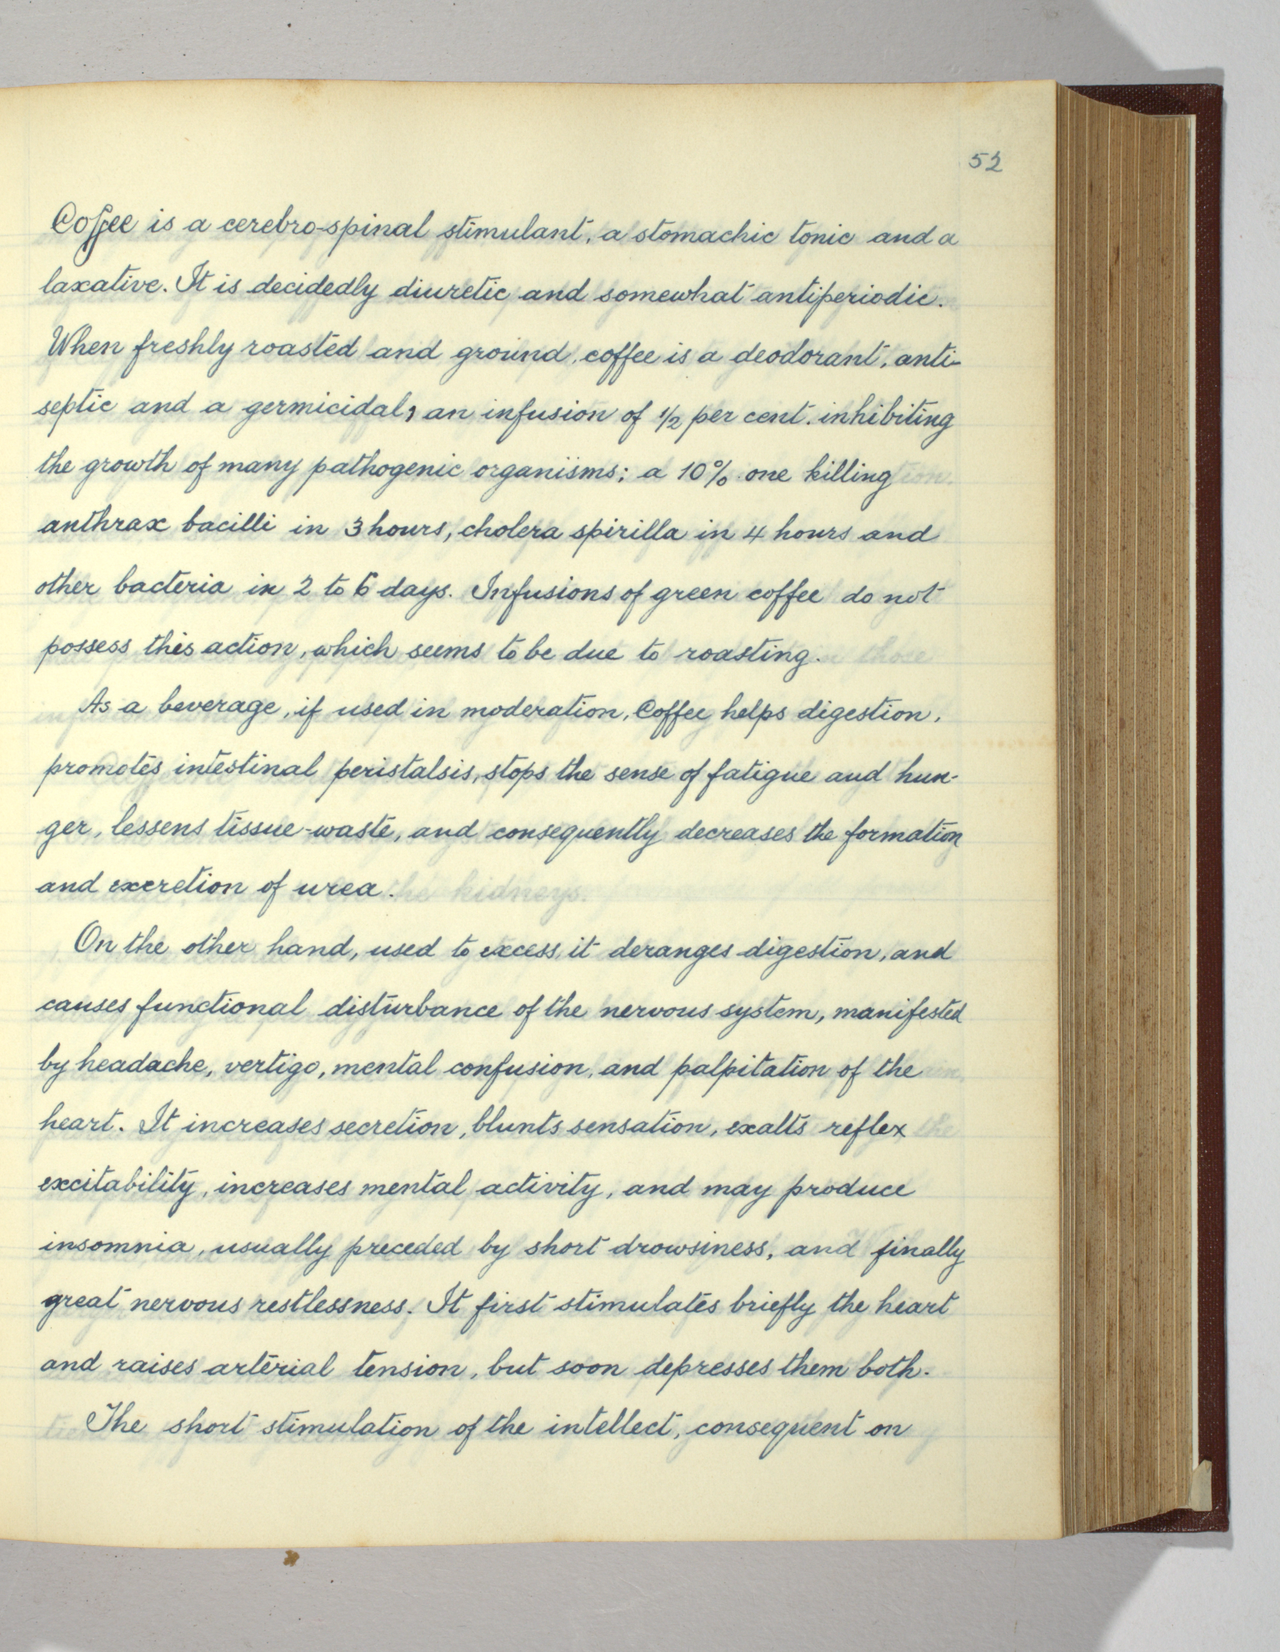 52
Coffee is a cerebro-spinal stimulant, a stomachic tonic and a
laxative. It is decidedly diuretic and somewhat antiperiodic.
When freshly roasted and ground, coffee is a deodorant, anti-
septic and a germicidal, an infusion of 1/2 per cent. inhibiting
the growth of many pathogenic organisms; a 10% one killing
anthrax bacilli in 3 hours, cholera spirilla in 4 hours and
other bacteria in 2 to 6 days. Infusions of green coffee do not
possess this action, which seems to be due to roasting.
As a beverage, if used in moderation, Coffee helps digestion,
promotes intestinal peristalsis, stops the sense of fatigue and hun-
ger, lessens tissue-waste, and consequently decreases the formation
and excretion of urea.
On the other hand, used to excess, it deranges digestion, and
causes functional disturbance of the nervous system, manifested
by headache, vertigo, mental confusion, and palpitation of the
heart. It increases secretion, blunts sensation, exalts reflex
excitability, increases mental activity, and may produce
insomnia, usually preceded by short drowsiness, and finally
great nervous restlessness. It first stimulates briefly the heart
and raises arterial tension, but soon depresses them both.
The short stimulation of the intellect, consequent on